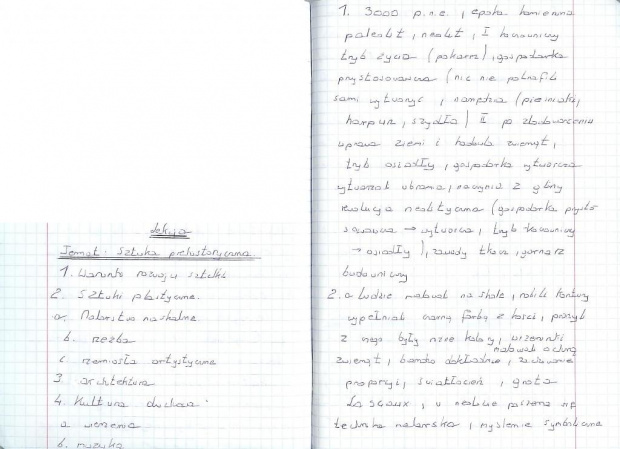 Lekcja
Temat: Sztuka prehistoryczna
1. Warunki rozwoju sztuki
2. Sztuki plastyczne.
a. Malarstwo naskalne
b. rzeźba
c. rzemiosło artystyczne
3. architektura
4. Kultura duchowa
a wierzenia
b. muzyka
1. 3000 p.n.e, epoka kamienna
paleolit, neolit, I koczowniczy
tryb życia (pokarm), gospodarka
przystosowawcza (nic nie potrafili
sami wytworzyć, narzędzia (pięściaki,
harpun, szydła) II po zlodowaceniu
uprawa ziemi i hodowla zwierząt,
tryb osiadły, gospodarka wytwórcza
wytwarzali ubrania, naczynia z gliny
rewolucja neolityczna (gospodarka przysto
sowawcza → wytwórcza, tryb koczowniczy
→ osiadły), zawody tkacz, garncarz
budowniczy
2. a ludzie malowali na skale, robili kontury
wypełniali czarną farbą z kości,
z niego były inne kolory, wizerunki
malowali ochrą
zwierząt, bardzo dokładnie, zachowanie
proporcji, światłocień, grota
Lascaux, w neolicie
technika malarska, myślenie symboliczne